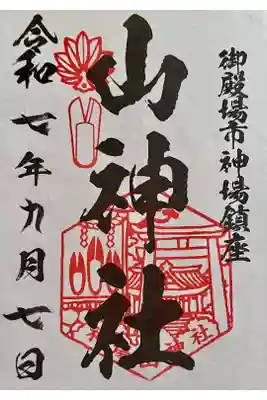 御殿場市神場鎮座
山神社
令和七年九月七日